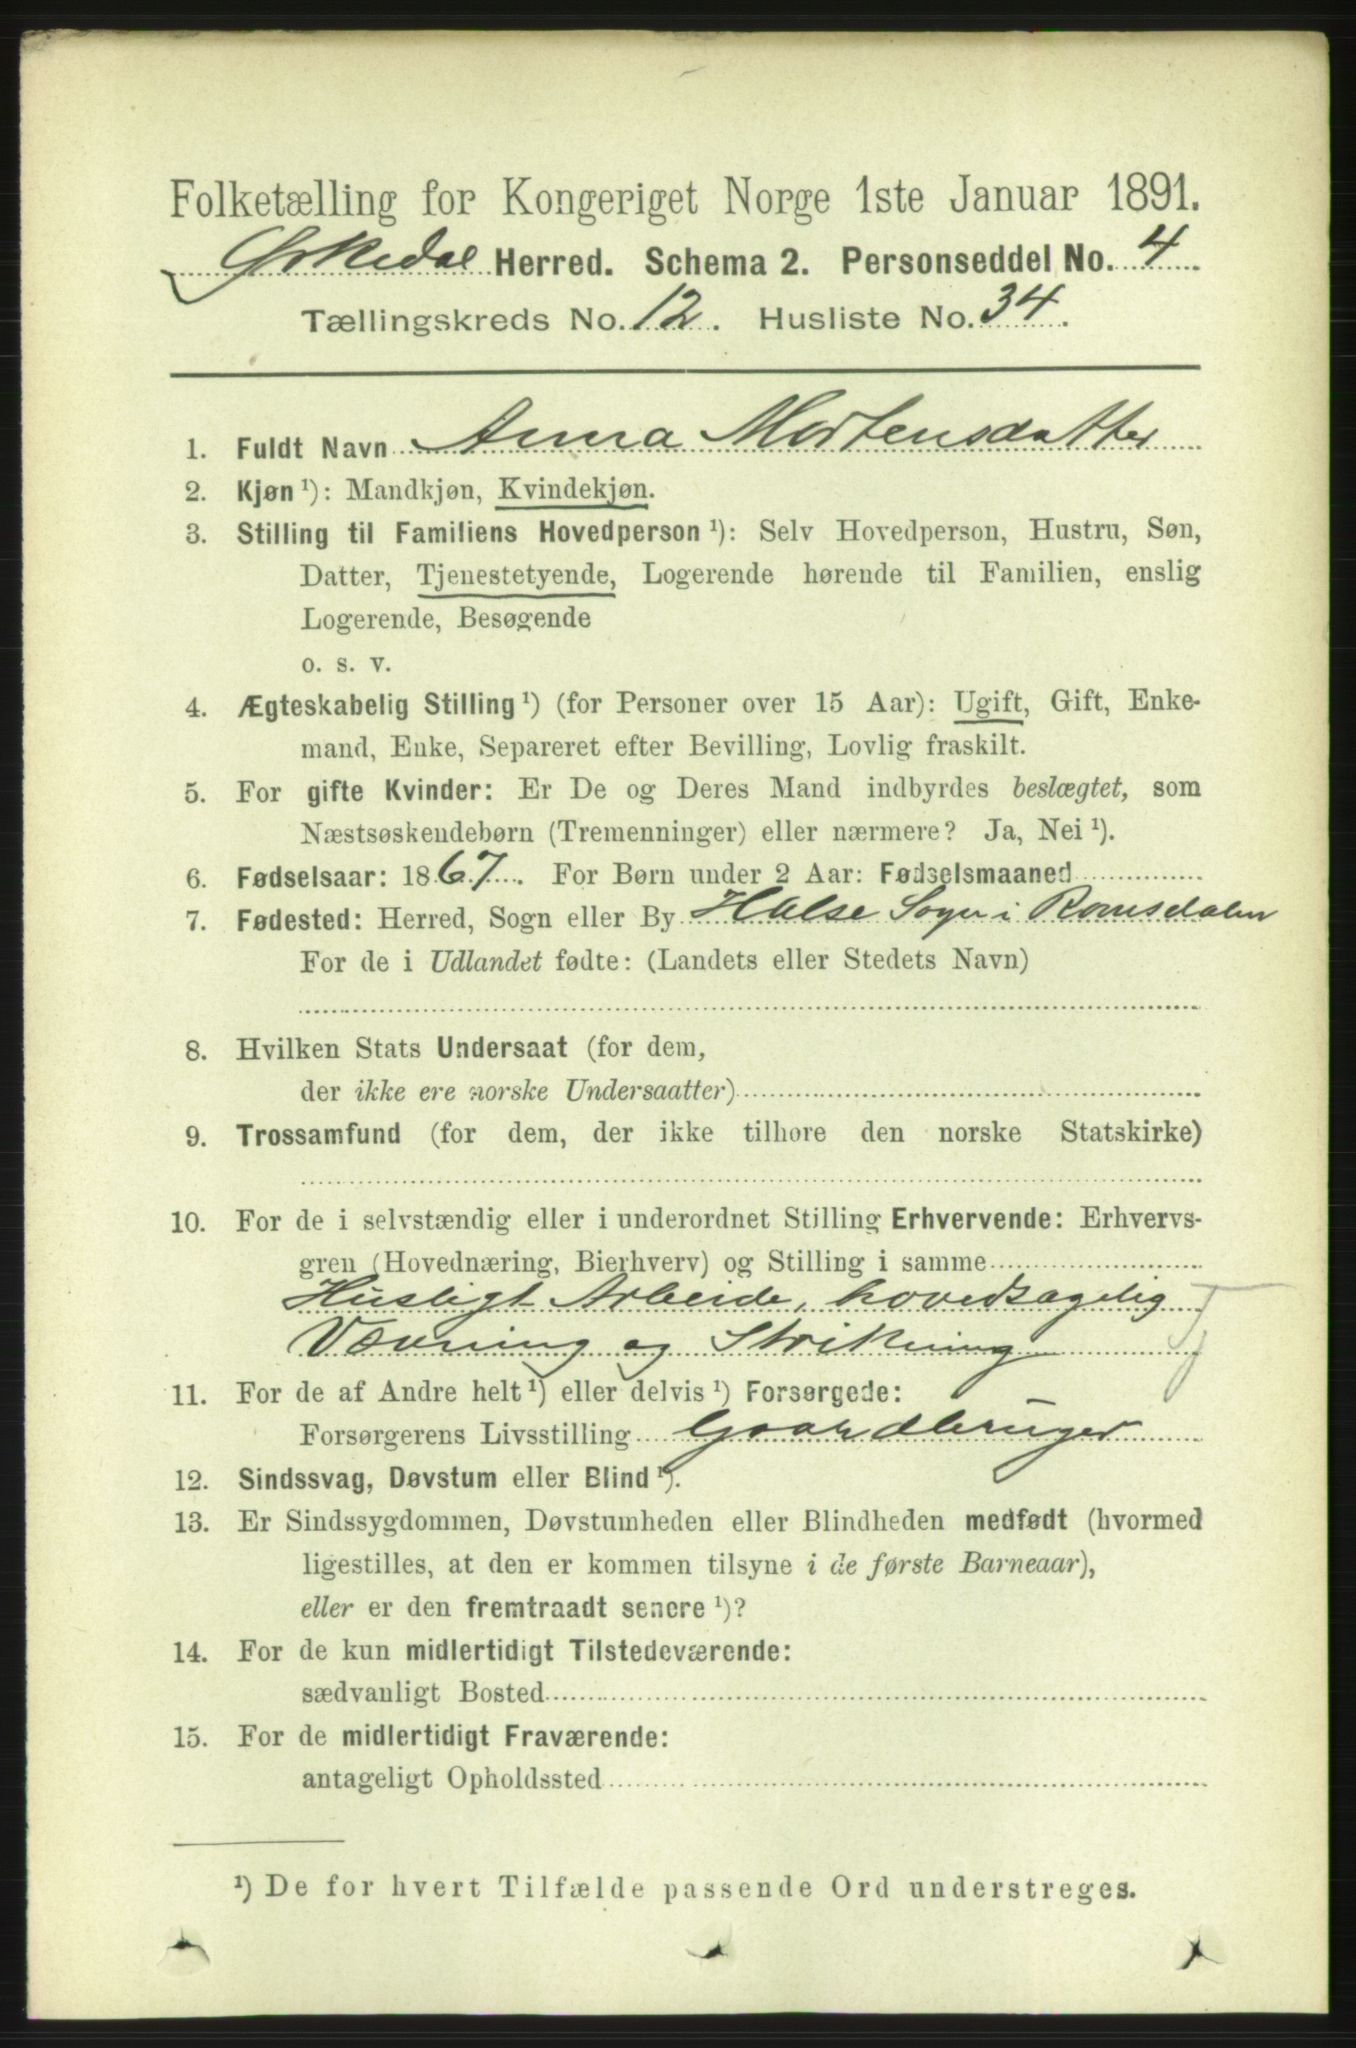 Folketælling for Kongeriget Norge 1ste Januar 1891.
Orkedal Herred. Schema 2. Personseddel No. 4
Tællingskreds No. 12. Husliste No. 34.
1. Fuldt Navn Anna Mortensdatter
2. Kjøn ¹): Mandkjøn, Kvindekjøn.
3. Stilling til Familiens Hovedperson ¹): Selv Hovedperson, Hustru, Søn,
Datter, Tjenestetyende, Logerende hørende til Familien, enslig
Logerende, Besøgende
o. s. v.
4. Ægteskabelig Stilling ¹) (for Personer over 15 Aar): Ugift, Gift, Enke-
mand, Enke, Separeret efter Bevilling, Lovlig fraskilt.
5. For gifte Kvinder: Er De og Deres Mand indbyrdes beslægtet, som
Næstsøskendebørn (Tremenninger) eller nærmere? Ja, Nei ¹).
6. Fødselsaar: 1867. For Børn under 2 Aar: Fødselsmaaned
7. Fødested: Herred, Sogn eller By Halse Sogn i Romsdalen
For de i Udlandet fødte: (Landets eller Stedets Navn)
8. Hvilken Stats Undersaat (for dem,
der ikke ere norske Undersaatter)
9. Trossamfund (for dem, der ikke tilhøre den norske Statskirke)
10. For de i selvstændig eller i underordnet Stilling Erhvervende: Erhvervs-
gren (Hovednæring, Bierhverv) og Stilling i samme
Husligt Arbeide, hovedsagelig
Vævning og Strikning
11. For de af Andre helt ¹) eller delvis ¹) Forsørgede:
Forsørgerens Livsstilling Gaardbruger
12. Sindssvag, Døvstum eller Blind ¹).
13. Er Sindssygdommen, Døvstumheden eller Blindheden medfødt (hvormed
ligestilles, at den er kommen tilsyne i de første Barneaar),
eller er den fremtraadt senere ¹)?
14. For de kun midlertidigt Tilstedeværende:
sædvanligt Bosted
15. For de midlertidigt Fraværende:
antageligt Opholdssted
¹) De for hvert Tilfælde passende Ord understreges.